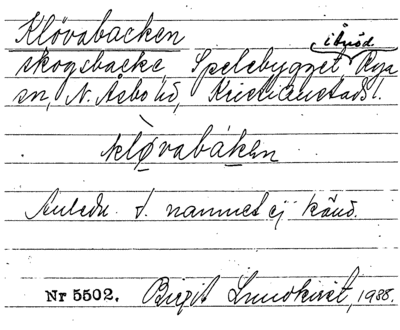 Klövabacken
skogsbacke, Spelebygget, Rya
sn, N. Åsbo hd, Kristianstads l.
klø̀vabáken
Anledn. t. namnet ej känd.
Nr 5502. Birgit Lundkvist, 1988.